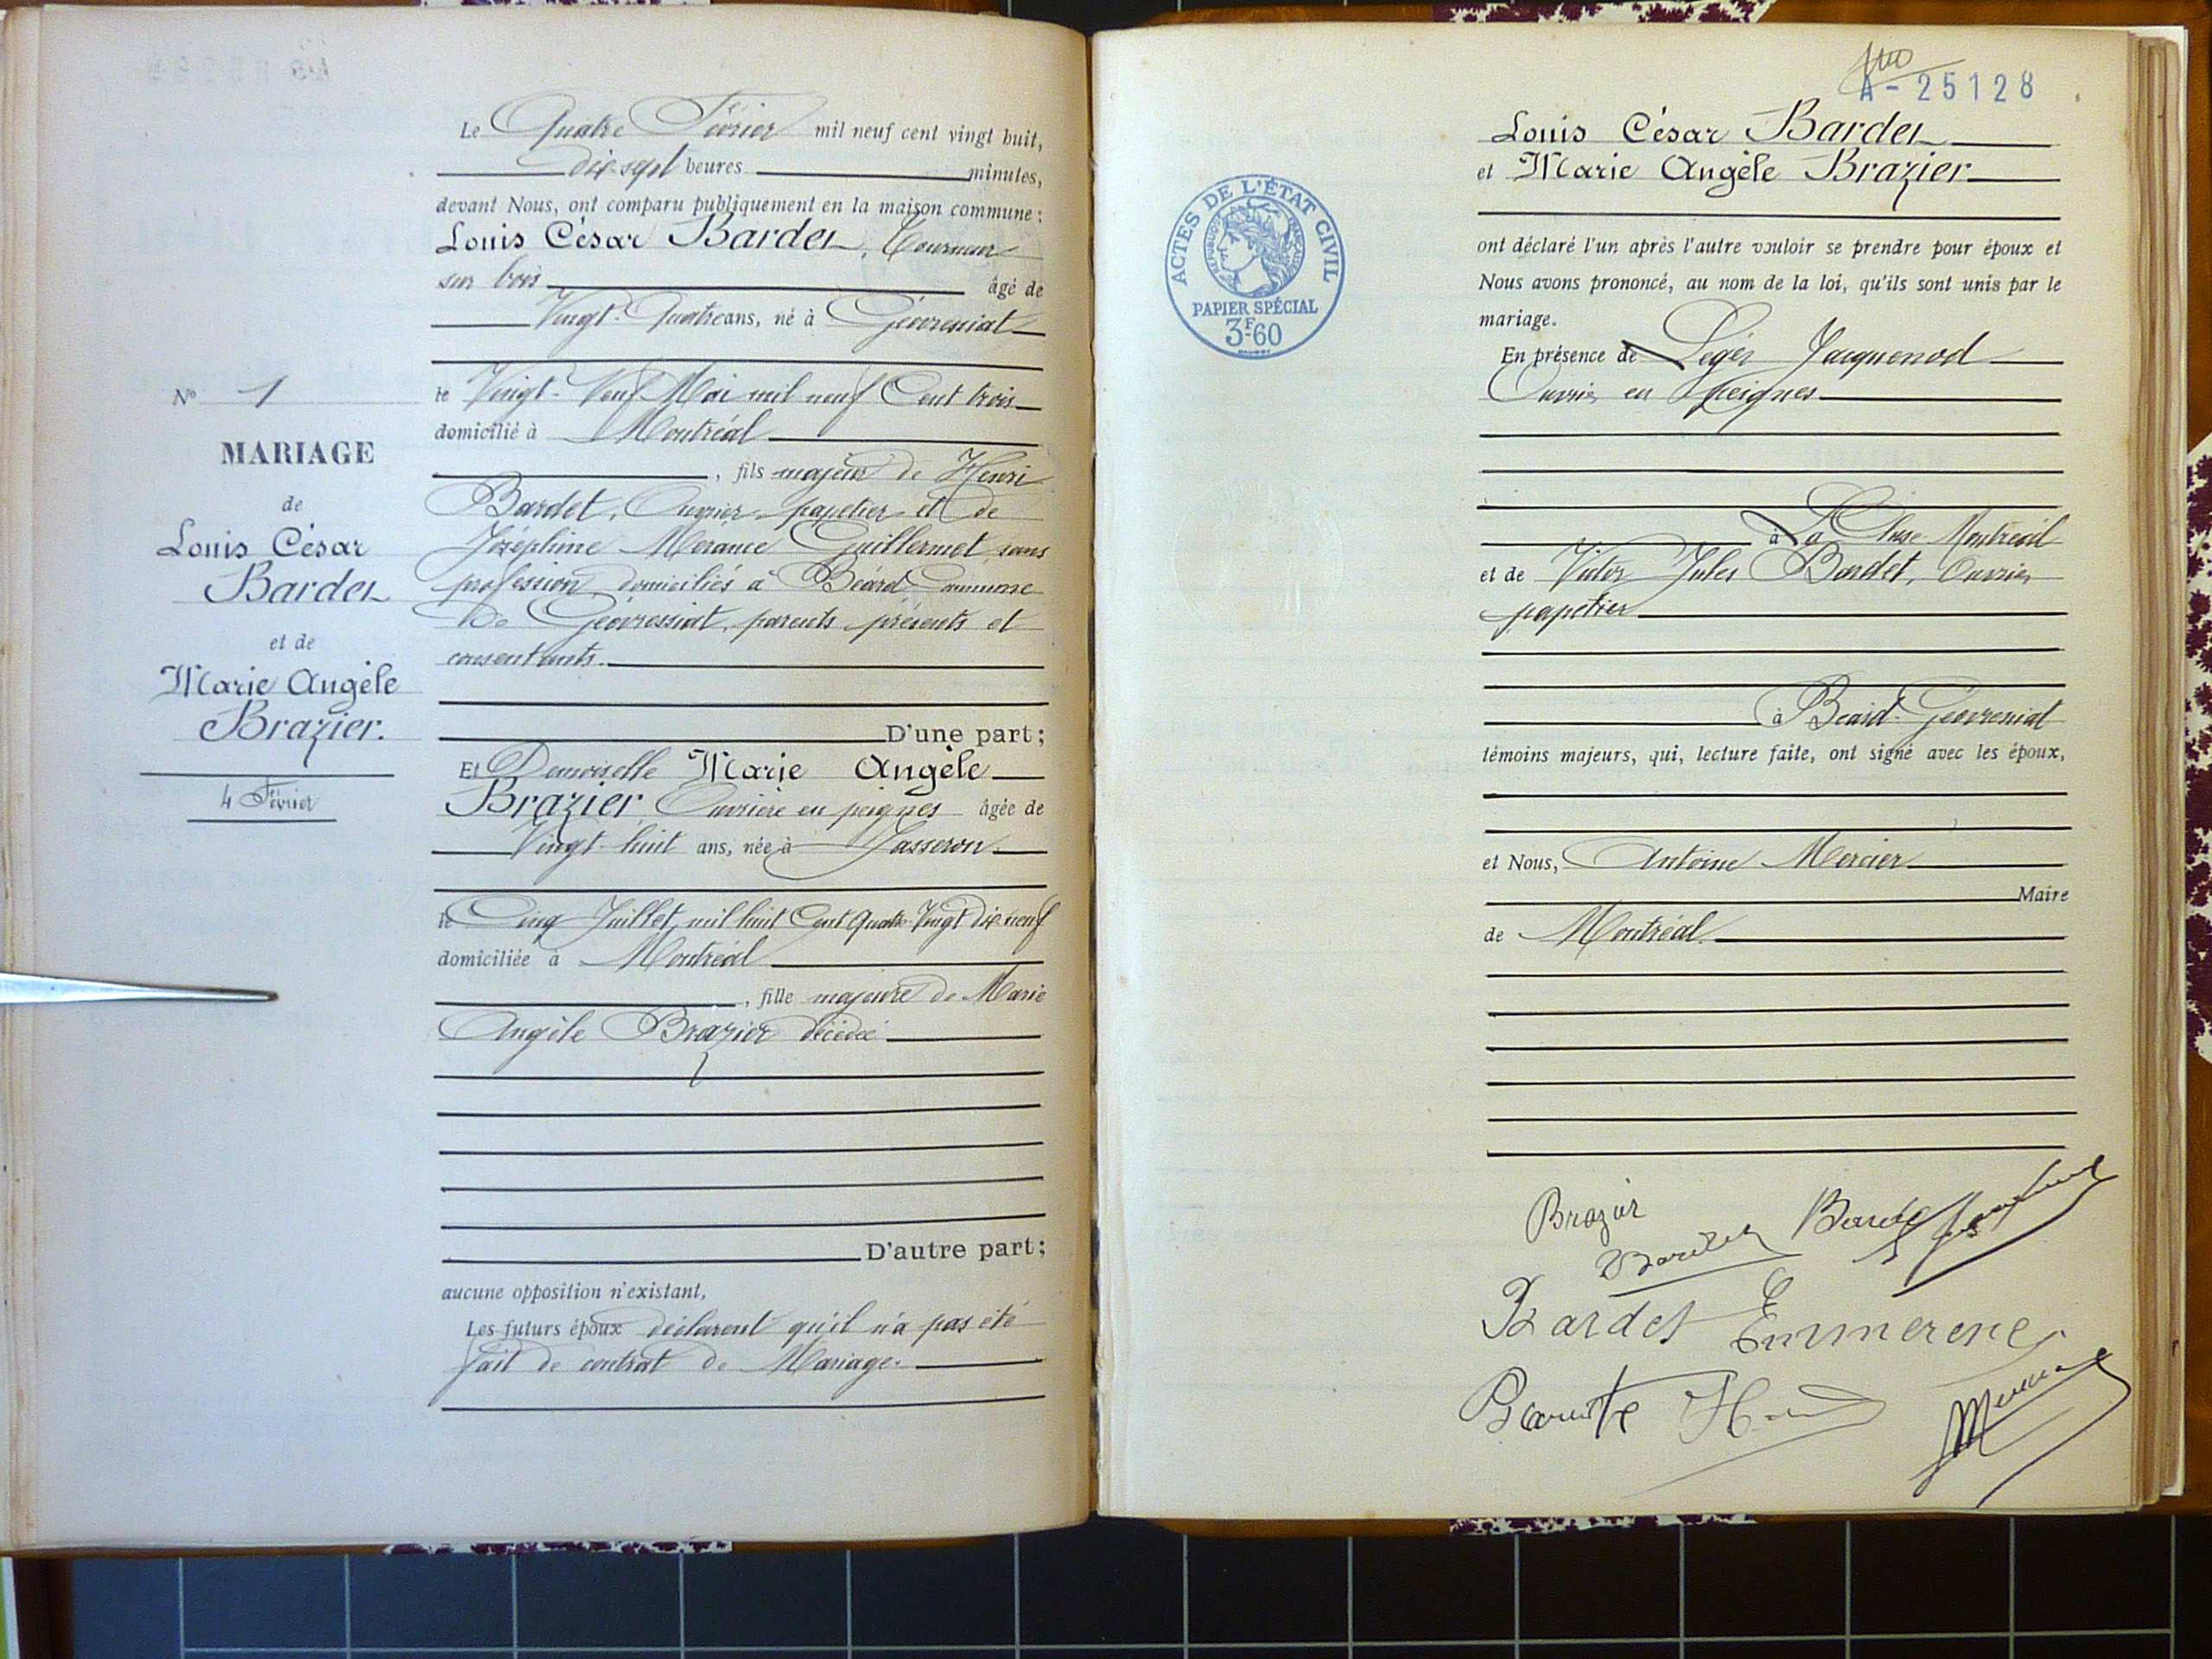 Le Quatre Février mil neuf cent vingt huit,
dix-sept heures minutes,
devant Nous, ont comparu publiquement en la maison commune :
Louis César Bardet, Tourneur
sur bois âgé de
Vingt-Quatre ans, né à Géovressiat
le Vingt-Neuf Mai mil neuf Cent trois
domicilié à Montréal
, fils majeur de Henri
Bardet, Ouvrier papetier et de
Joséphine Guillermet, sans
profession, domiciliés à Béard Commune
De Géovressiat, parents présents et
consentants.
D'une part;
Et Demoiselle Marie Angèle
Brazier, Ouvrière en peignes âgée de
Vingt-huit ans, née à Jasseron
le Cinq Juillet mil huit Cent Quatre-Vingt Dix neuf
domiciliée à Montréal
, fille majeure de Marie
Angèle Brazier décédée
D'autre part;
aucune opposition n'existant,
Les futurs époux déclarent qu'il n'a pas été
fait de contrat de Mariage.
N° 1
MARIAGE
de
Louis César
Bardet
et de
Marie Angèle
Brazier.
4 Février
A-25128
Louis César Bardet
et Marie Angèle Brazier
ont déclaré l'un après l'autre vouloir se prendre pour époux et
Nous avons prononcé, au nom de la loi, qu'ils sont unis par le
mariage.
En présence de Léger Jacquenod
Ouvrier en Peignes
à La Cluse Montréal
et de Victor Jules Bardet, Ouvrier
papetier
à Béard-Géovressiat
témoins majeurs, qui, lecture faite, ont signé avec les époux,
et Nous, Antoine Mercier
Maire
de Montréal.
ACTES DE L'ÉTAT CIVIL
RÉPUBLIQUE FRANÇAISE
PAPIER SPÉCIAL
3F.60
Brazier
Bardet
Bardet